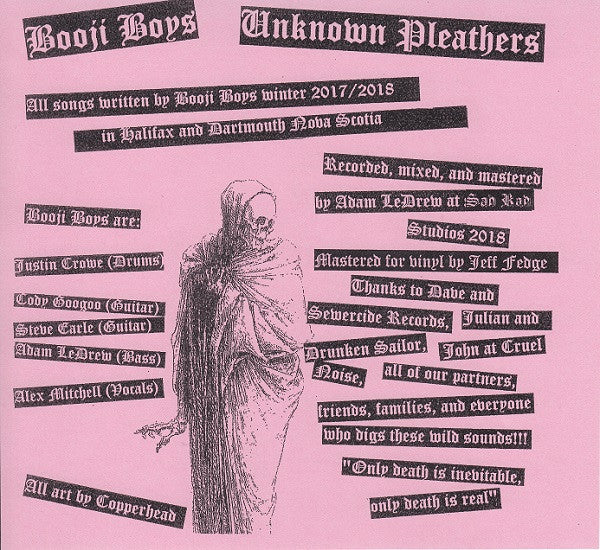 Booji Boys
Unknown Pleathers
All songs written by Booji Boys winter 2017/2018
in Halifax and Dartmouth Nova Scotia
Booji Boys are:
Justin Crowe (Drums)
Cody Googoo (Guitar)
Steve Earle (Guitar)
Adam LeDrew (Bass)
Alex Mitchell (Vocals)
All art by Copperhead
Recorded, mixed, and mastered
by Adam LeDrew at Sad Rad
Studios 2018
Mastered for vinyl by Jeff Fedge
Thanks to Dave and
Sewercide Records, Julian and
Drunken Sailor, John at Cruel
Noise, all of our partners,
friends, families, and everyone
who digs these wild sounds!!!
"Only death is inevitable,
only death is real"